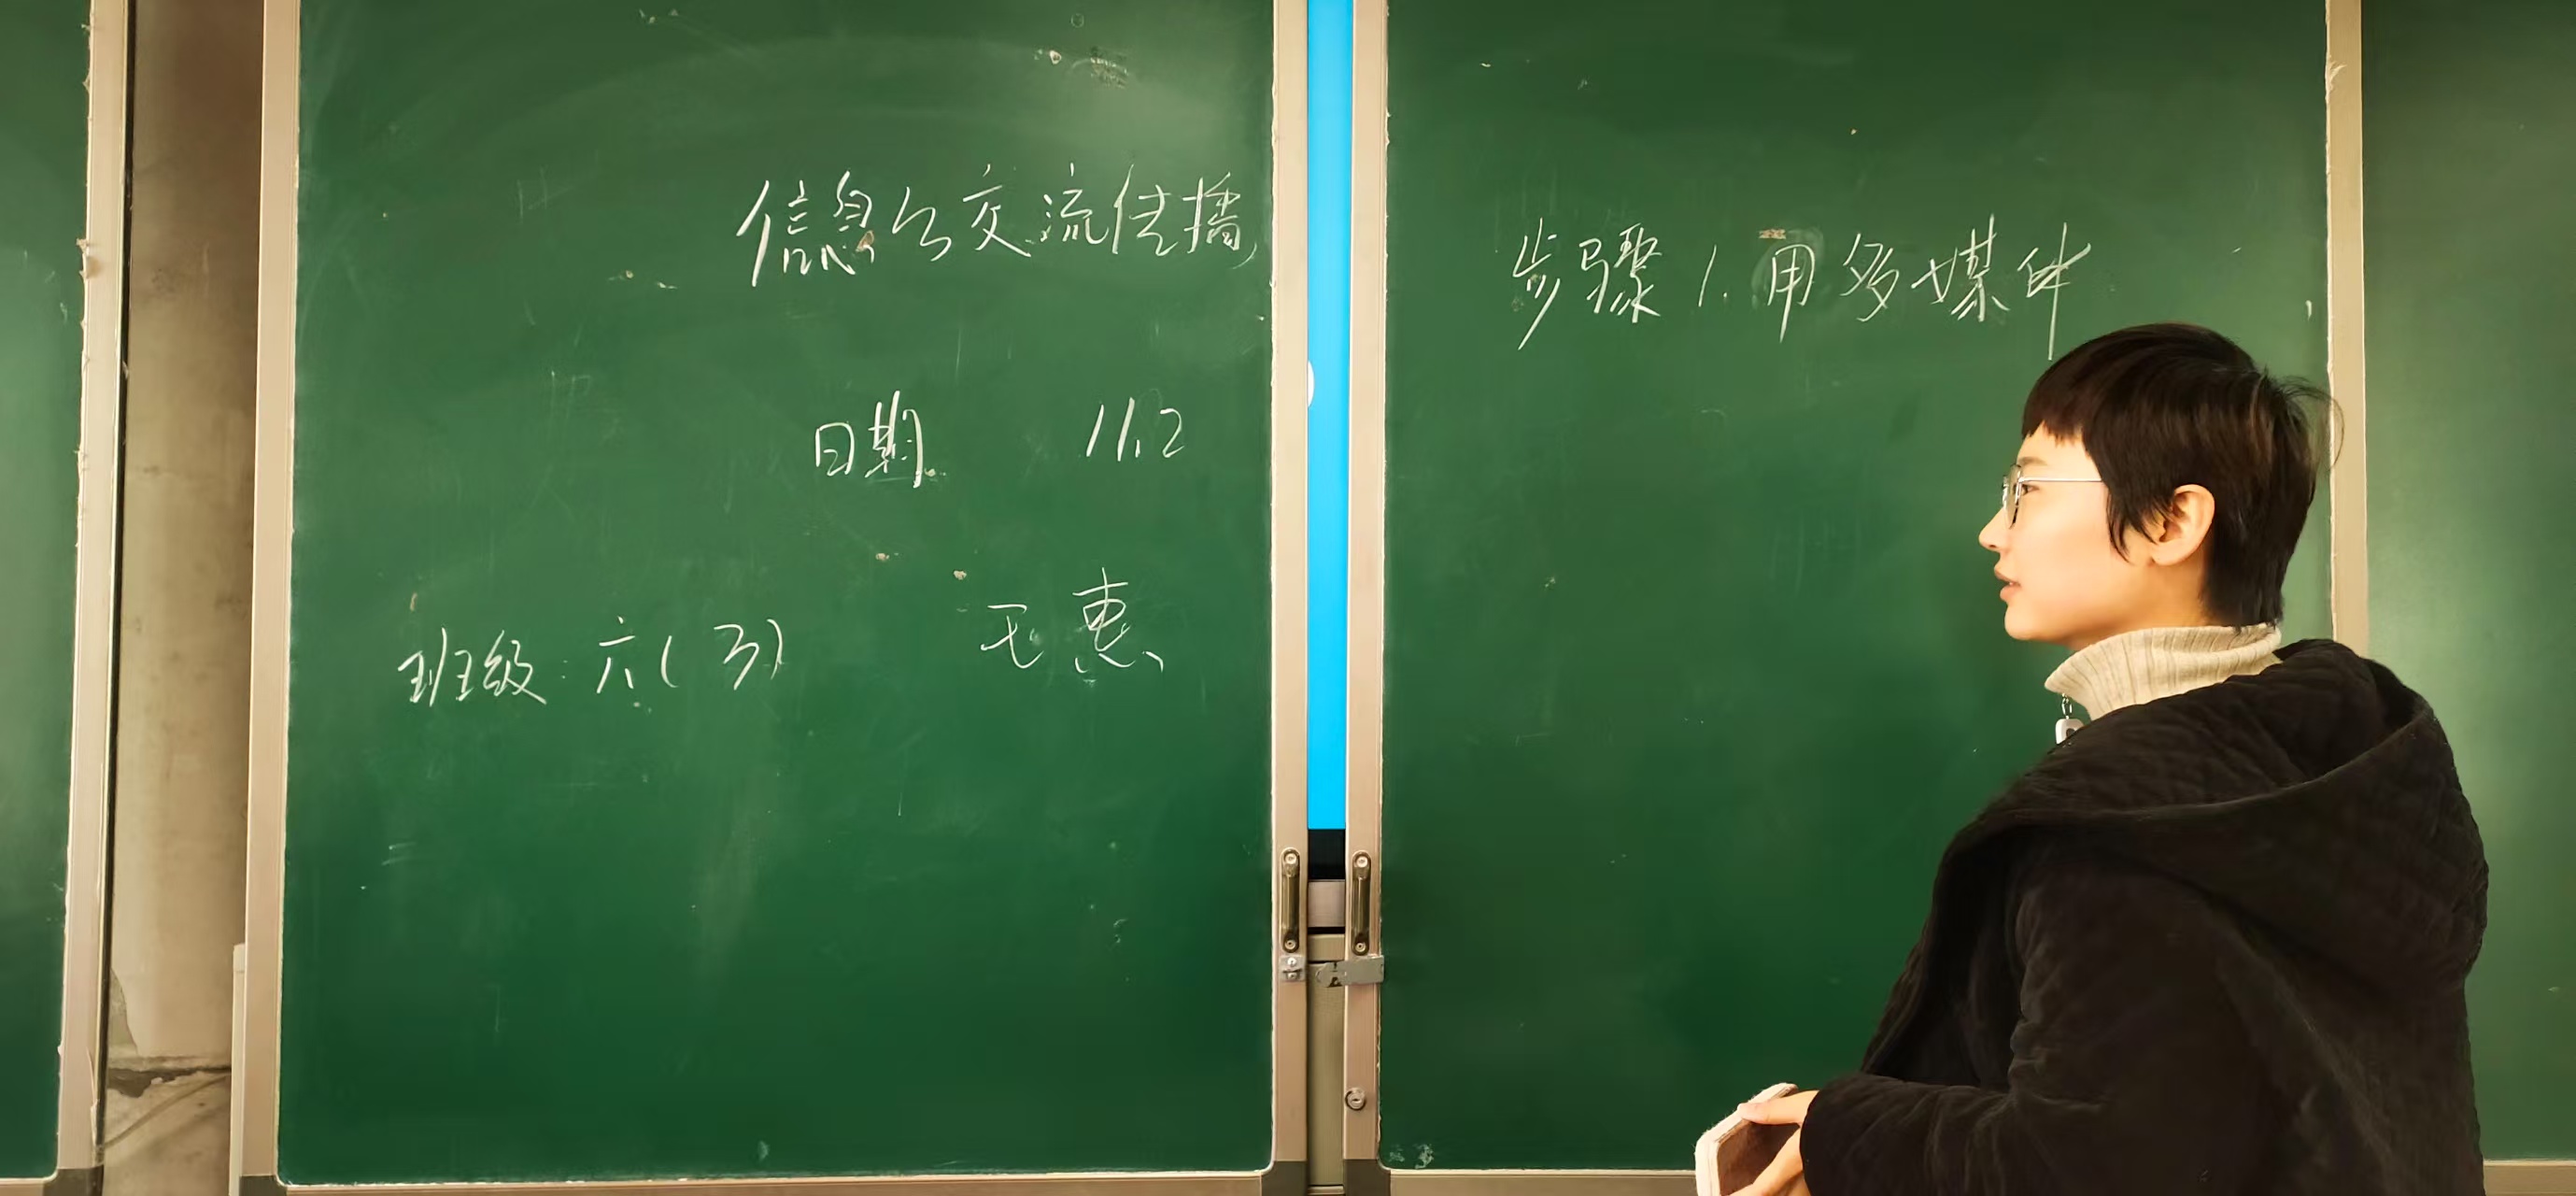 信息的交流传播
日期 11.2
班级:六(3)
步骤 1.用多媒体